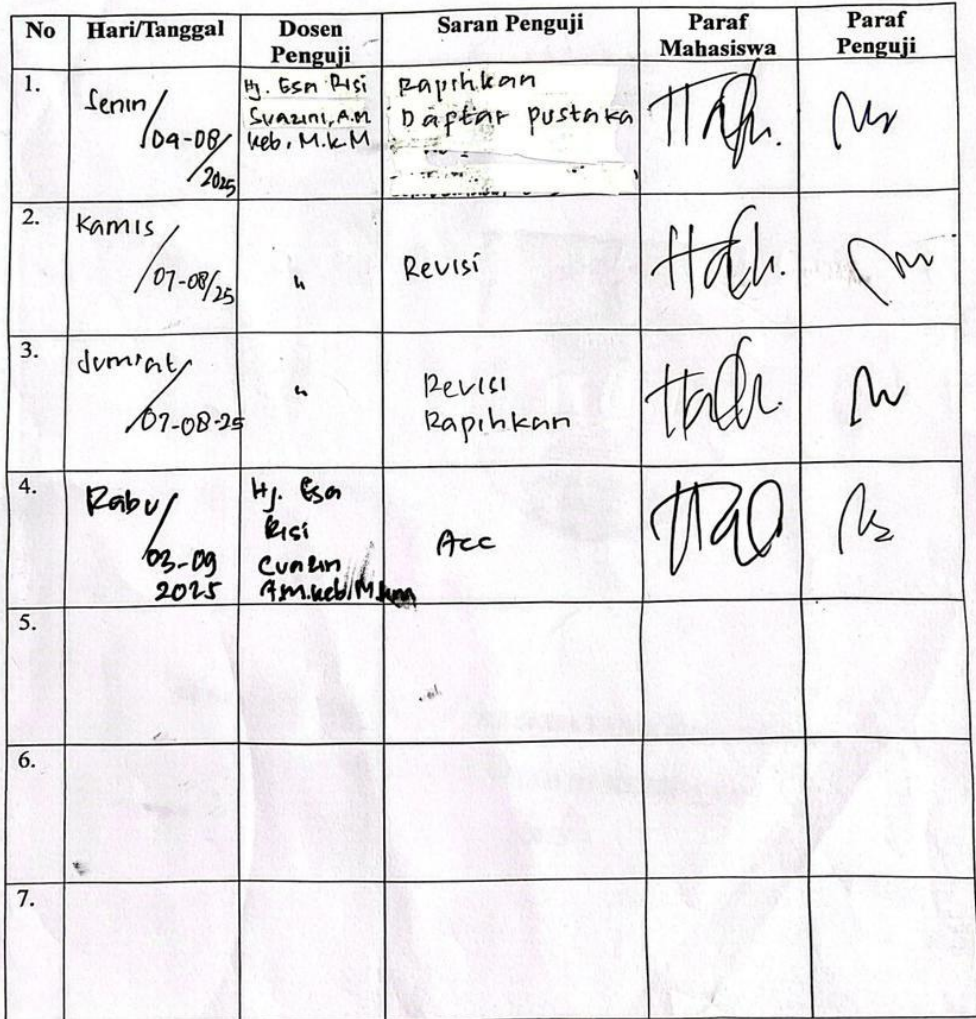 No Hari/Tanggal Dosen Penguji Saran Penguji Paraf Mahasiswa Paraf Penguji
1.
Senin/
04-08/
2025
Hj. Esa Risi
Suazini, A.M
Keb, M.K.M
Rapihkan
Daftar pustaka
2.
Kamis/
07-08/25
"
Revisi
3.
Jumiat/
07-08-25
"
Revisi
Rapihkan
4.
Rabu/
03-09
2025
Hj. Esa
Risi
Am.keb/M.km
Acc
5.
6.
7.